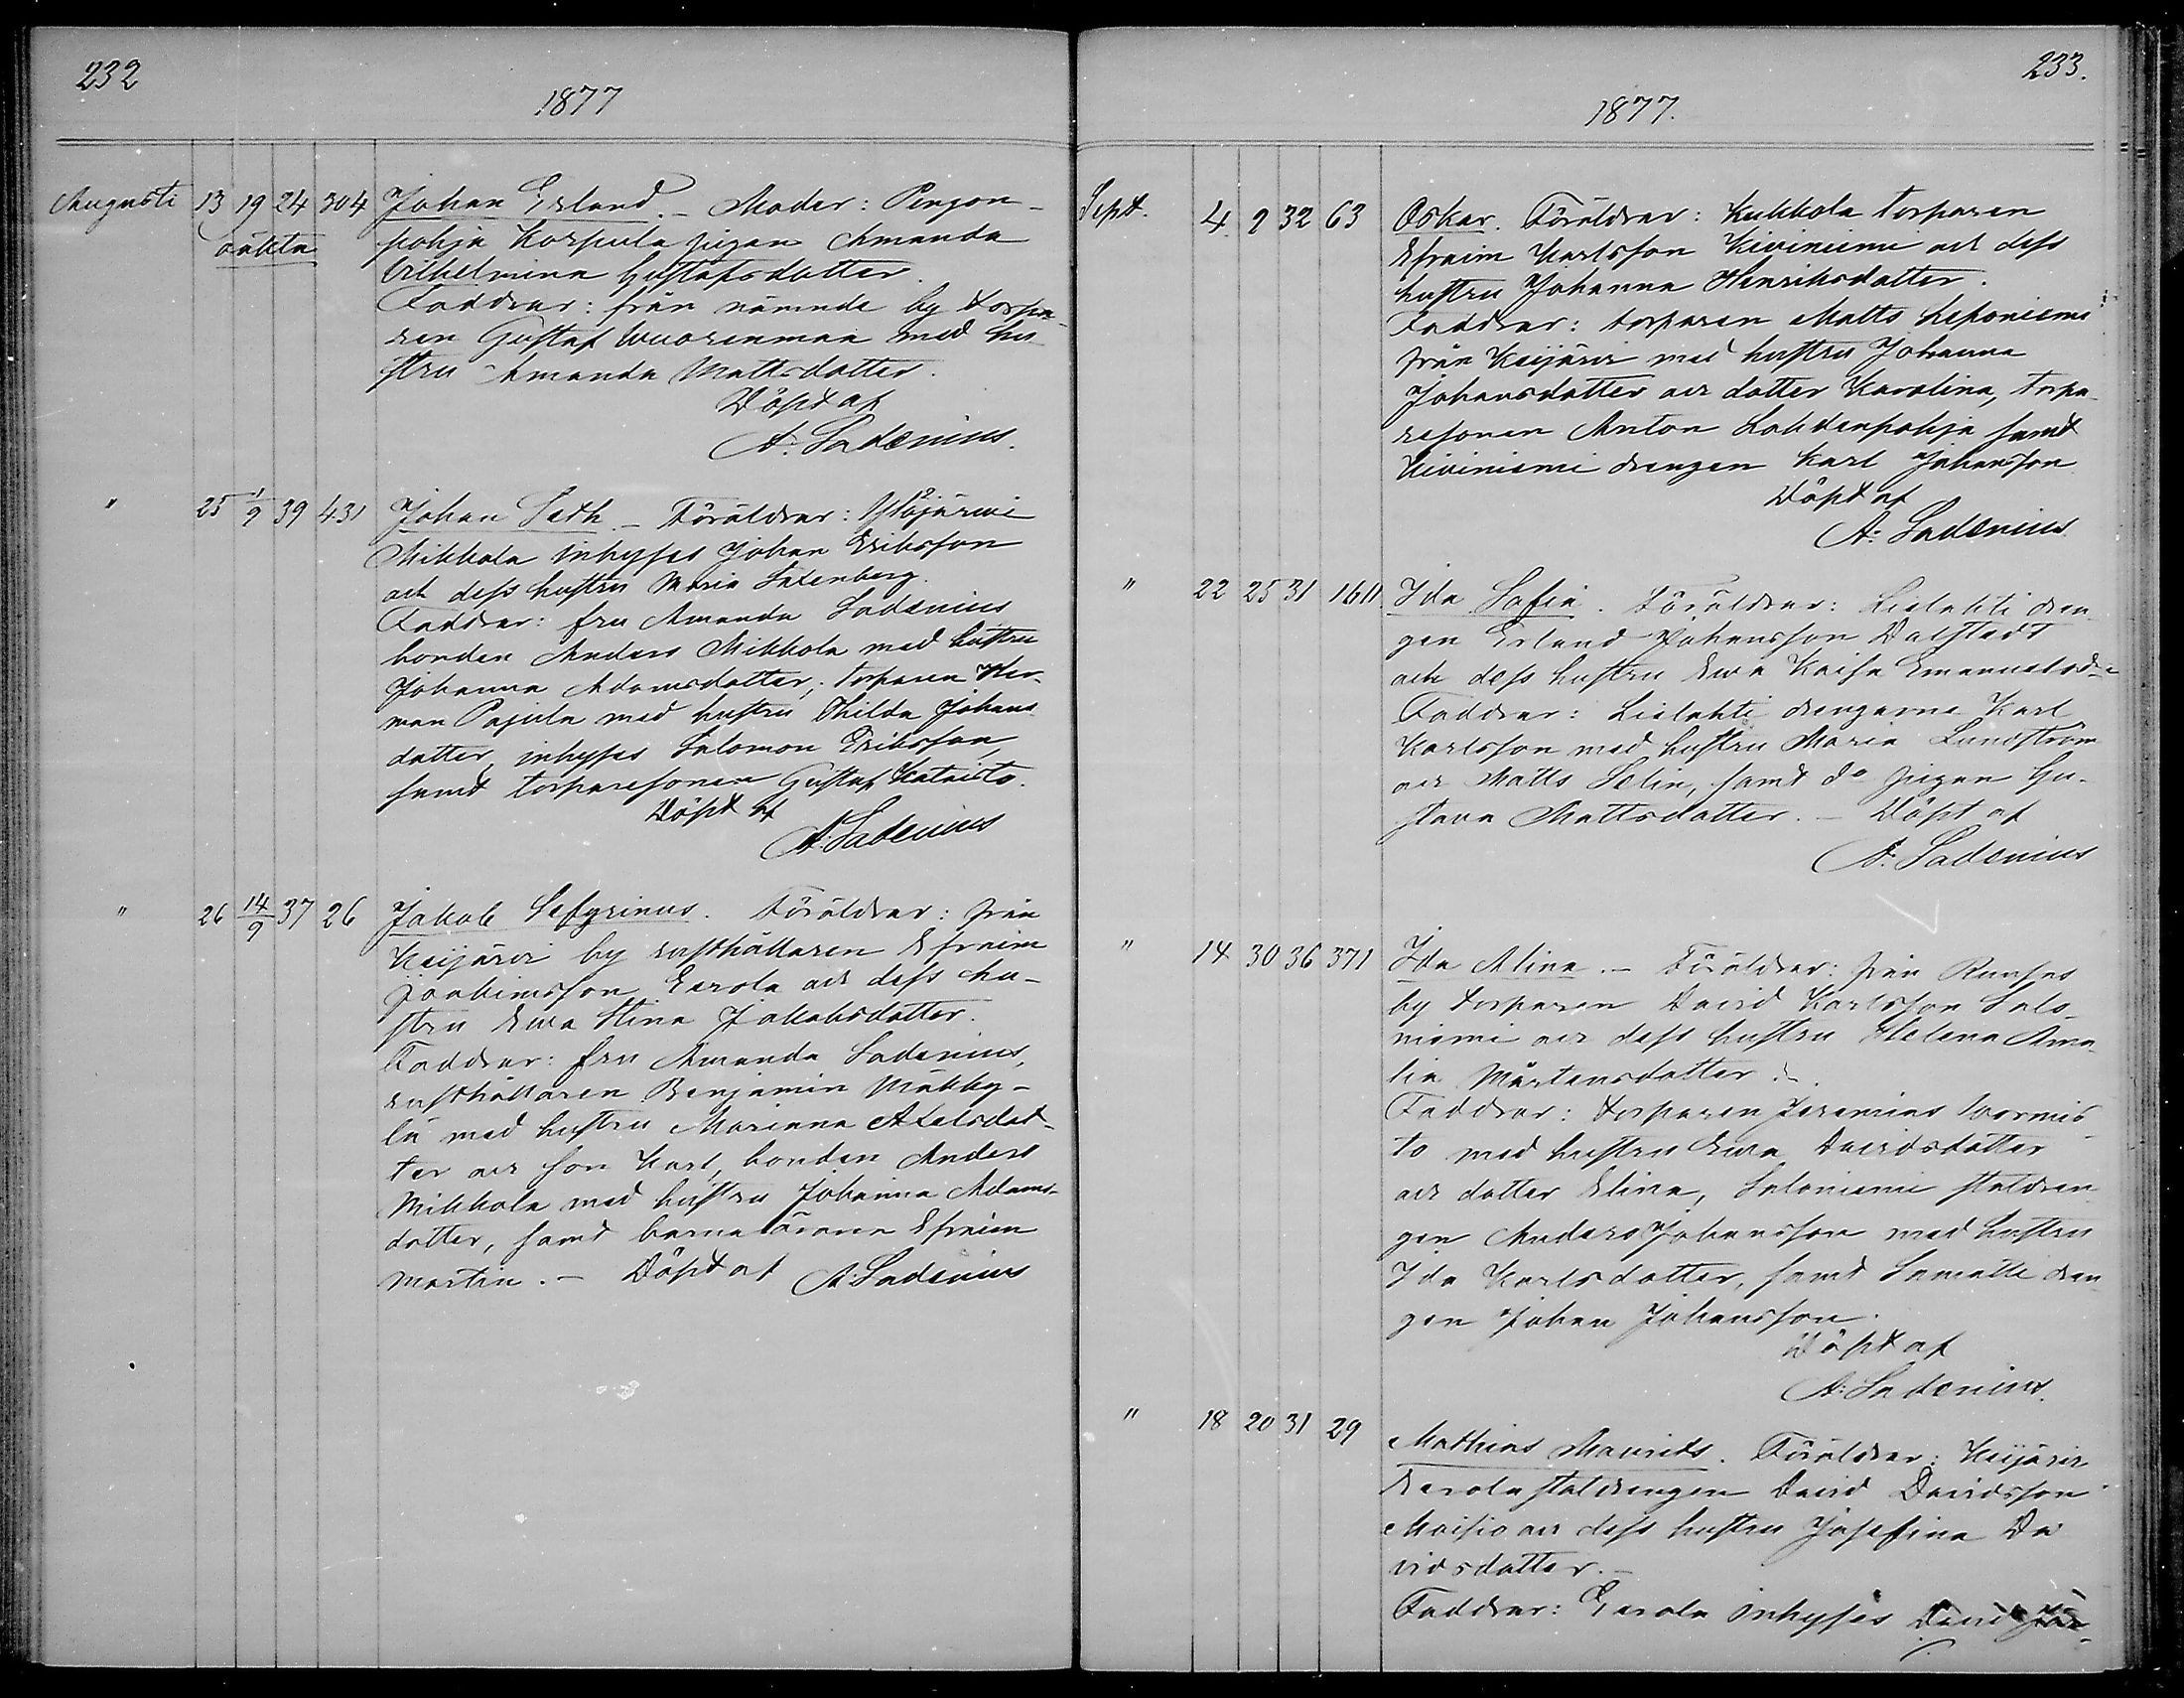 232
1877
Augusti 13 19 24 304 Johan Erland. - Moder: Pengon-
oäkta pohja Korpula pigan Amanda
Vilhelmina Gustafsdotter.
Faddrar: från nämnde by torpa-
ren Gustaf Wuorenmaa med hu-
stru Amanda Mattsdotter.
Döpt af
A. Ladenius.
" 25 1/9 39 431 Johan Seth. - Föräldrar: Ylöjärwi
Mikkola inhyses Johan Eriksson
och dess hustru Maria
Faddrar: fru Amanda Ladenius
bonden Anders Mikkola med hustru
Johanna Adamsdotter, torparen Her-
man Pajula med hustru Thilda Johans
dotter, inhyses Salomon Eriksson
samt torparesonen Gustaf Katajisto.
Döpt af
A. Ladenius
" 26 14/9 37 26 Jakob Sefyrinus. Föräldrar: från
Keijärvi by rusthållaren Efraim
Joakimsson Eerola och dess hu-
stru Ewa Stina Jakobsdotter.
Faddrar: fru Amanda Ladenius,
rusthållaren Benjamin Mäkky-
lä med hustru Marianna Axelsdot-
ter och son Karl, bonden Anders
Mikkola med hustru Johanna Adams-
dotter, samt barnaläraren Efraim
Martin. - Döpt af A. Ladenius
233.
1877.
Sept. 4 9 32 63 Oskar. Föräldrar: Kukkola torparen
Efraim Karlsson Kiviniemi och dess
hustru Johanna Henriksdotter.
Faddrar: torparen Matts Leponiemi
från Keijärvi med hustru Johanna
Johansdotter och dotter Karolina, torpa-
resonen Anton Lahdenpohja samt
Kiviniemi drengen Karl Johansson
Döpt af
A. Ladenius.
" 22 25 31 1611. Ida Sofia. Föräldrar: Lielahti dren-
gen Erland Johansson Dalstedt
och dess hustru Ewa Kaisa Emanuelsd:r
Faddrar: Lielahti drengarne Karl
Karlsson med hustru Maria Lundström
och Matts Selin, samt d:o pigan Gu-
stava Mattsdotter. - Döpt af
A. Ladenius
" 14 30 36 371 Ida Alina. - Föräldrar: från Runsas
by torparen David Karlsson Salo-
niemi och dess hustru Helena Ama-
lia Mårtensdotter.
Faddrar: torparen Jeremias Wormis-
to med hustru Ewa Davidsdotter
och dotter Elina, Saloniemi staldren-
gen Anders Johansson med hustru
Ida Karlsdotter, samt Lamalle dren-
gen Johan Johansson.
Döpt af
A. Ladenius.
" 18 20 31 29 Mathias Maurits. Föräldrar: Keijärvi
Eerola staldrengen David Davidsson
Moisio och dess hustru Josefina Da-
vidsdotter. -
Faddrar: Eerola inhyses David